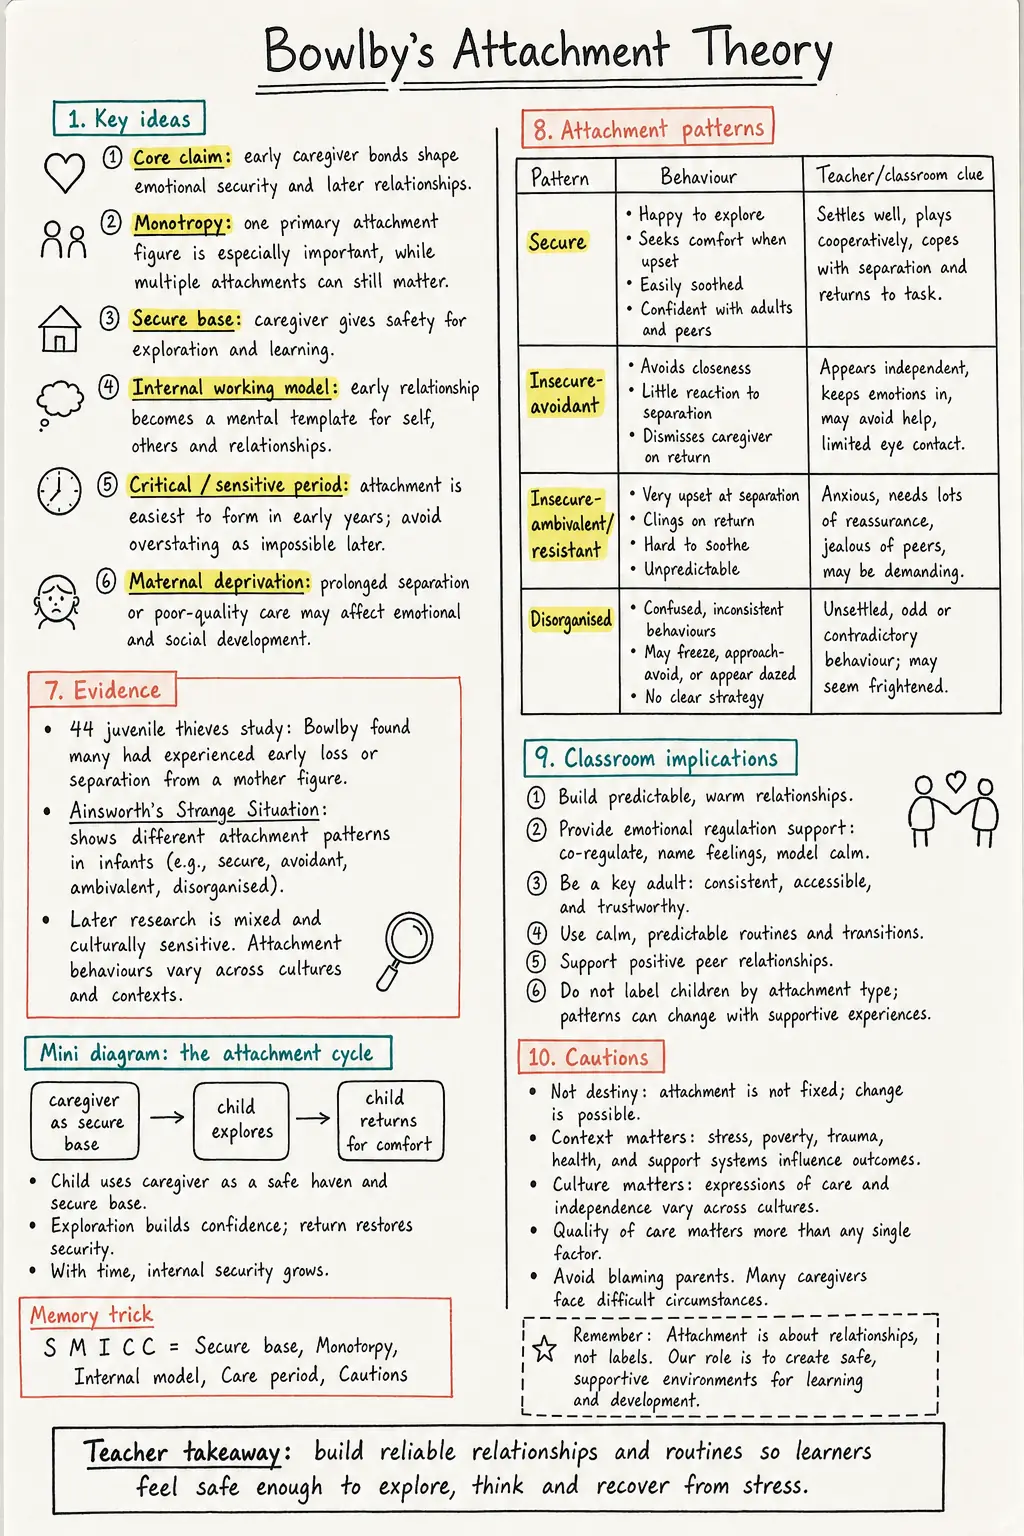 Bowlby's Attachment Theory
1. Key ideas
① Core claim: early caregiver bonds shape
emotional security and later relationships.
② Monotropy: one primary attachment
figure is especially important, while
multiple attachments can still matter.
③ Secure base: caregiver gives safety for
exploration and learning.
④ Internal working model: early relationship
becomes a mental template for self,
others and relationships.
⑤ Critical / sensitive period: attachment is
easiest to form in early years; avoid
overstating as impossible later.
⑥ Maternal deprivation: prolonged separation
or poor-quality care may affect emotional
and social development.
7. Evidence
• 44 juvenile thieves study: Bowlby found
many had experienced early loss or
separation from a mother figure.
• Ainsworth's Strange Situation:
shows different attachment patterns
in infants (e.g., secure, avoidant,
ambivalent, disorganised).
• Later research is mixed and
culturally sensitive. Attachment
behaviours vary across cultures
and contexts.
Mini diagram: the attachment cycle
caregiver
as secure
base
child
explores
child
returns
for comfort
• Child uses caregiver as a safe haven and
secure base.
• Exploration builds confidence; return restores
security.
• With time, internal security grows.
Memory trick
S M I C C = Secure base, Monotorpy,
Internal model, Care period, Cautions
8. Attachment patterns
Pattern
Behaviour
Teacher/classroom clue
Secure
• Happy to explore
• Seeks comfort when
upset
• Easily soothed
• Confident with adults
and peers
Settles well, plays
cooperatively, copes
with separation and
returns to task.
Insecure-
avoidant
• Avoids closeness
• Little reaction to
separation
• Dismisses caregiver
on return
Appears independent,
keeps emotions in,
may avoid help,
limited eye contact.
Insecure-
ambivalent/
resistant
• Very upset at separation
• Clings on return
• Hard to soothe
• Unpredictable
Anxious, needs lots
of reassurance,
jealous of peers,
may be demanding.
Disorganised
• Confused, inconsistent
behaviours
• May freeze, approach-
avoid, or appear dazed
• No clear strategy
Unsettled, odd or
contradictory
behaviour; may
seem frightened.
9. Classroom implications
① Build predictable, warm relationships.
② Provide emotional regulation support:
co-regulate, name feelings, model calm.
③ Be a key adult: consistent, accessible,
and trustworthy.
④ Use calm, predictable routines and transitions.
⑤ Support positive peer relationships.
⑥ Do not label children by attachment type;
patterns can change with supportive experiences.
10. Cautions
• Not destiny: attachment is not fixed; change
is possible.
• Context matters: stress, poverty, trauma,
health, and support systems influence outcomes.
• Culture matters: expressions of care and
independence vary across cultures.
• Quality of care matters more than any single
factor.
• Avoid blaming parents. Many caregivers
face difficult circumstances.
Remember: Attachment is about relationships,
not labels. Our role is to create safe,
supportive environments for learning
and development.
Teacher takeaway: build reliable relationships and routines so learners
feel safe enough to explore, think and recover from stress.